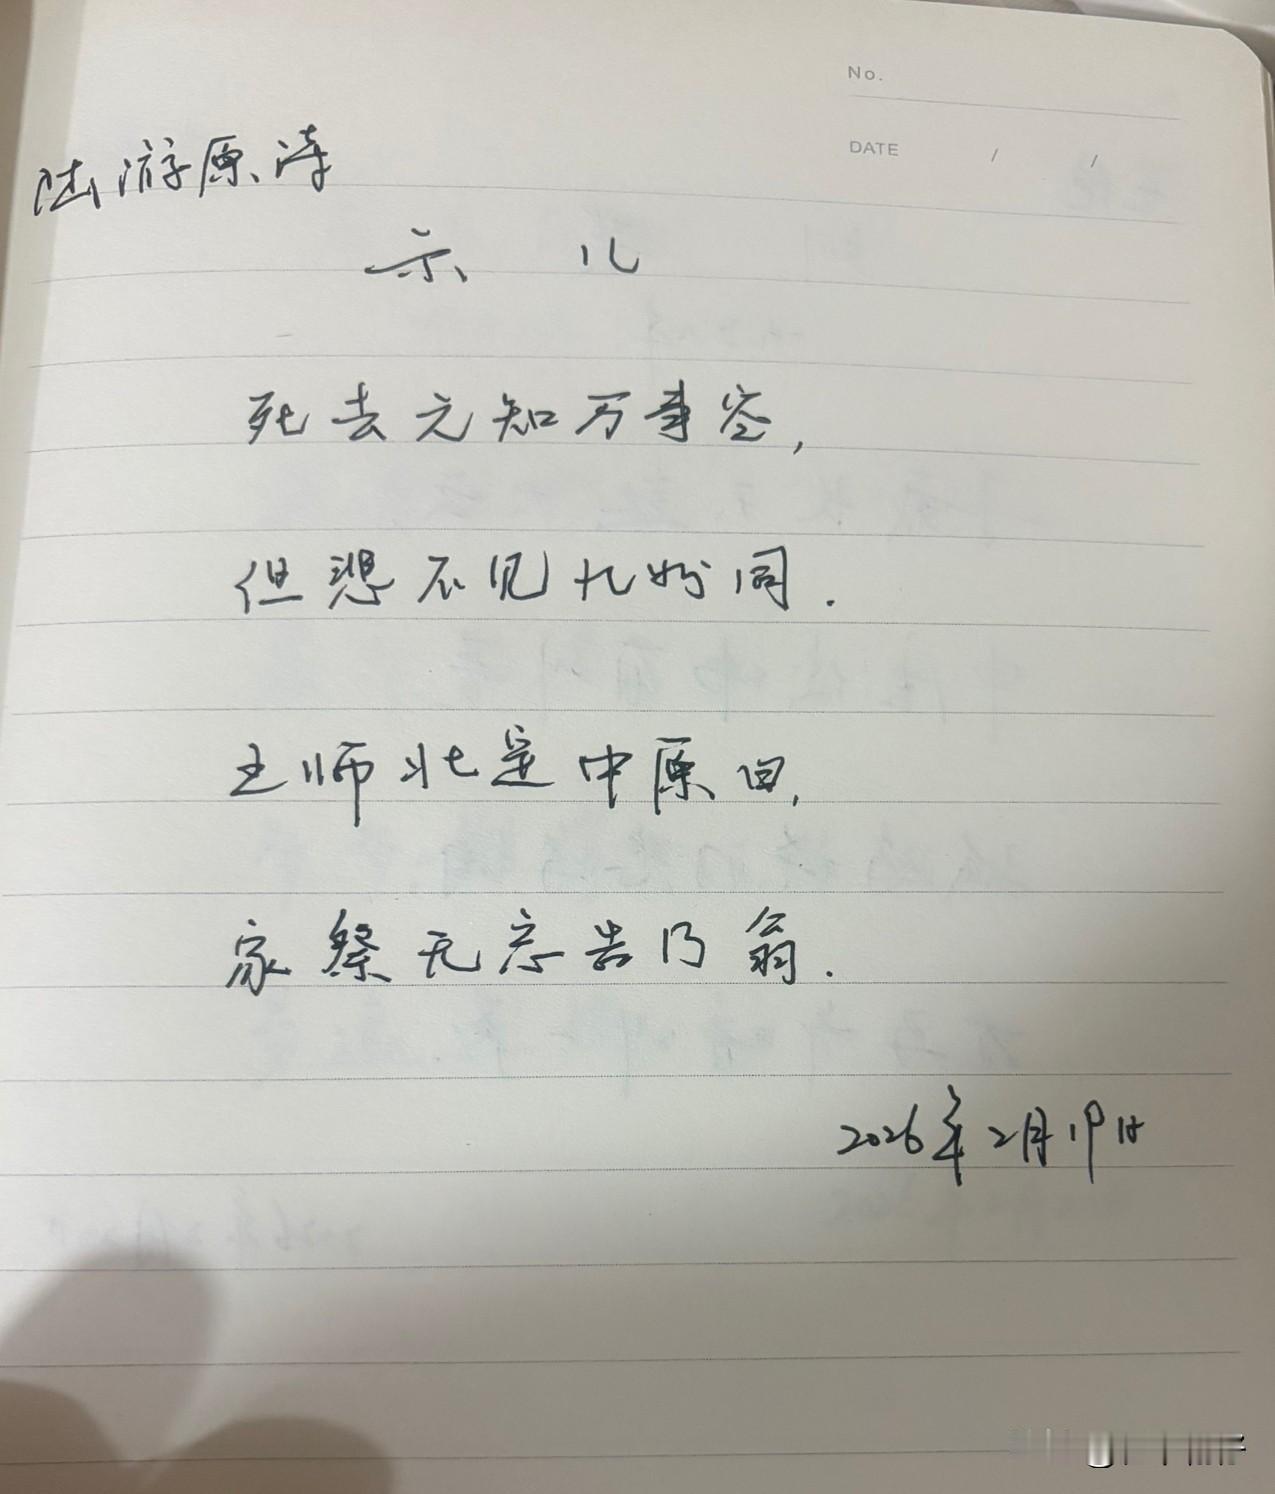 No.
DATE / /
陆游原诗
示 儿
死去元知万事空,
但想不见九州同.
王师北定中原日,
家祭无忘告乃翁.
2026年2月19日